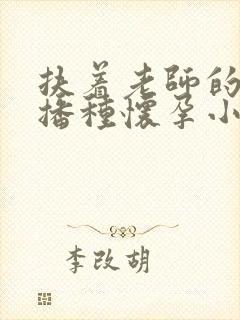 扶着老师的
播種懷孕小
李改胡